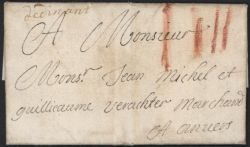 A Monsieur
Mons.r Jean Michel et
guillieaume verachter Marchand
A anvers